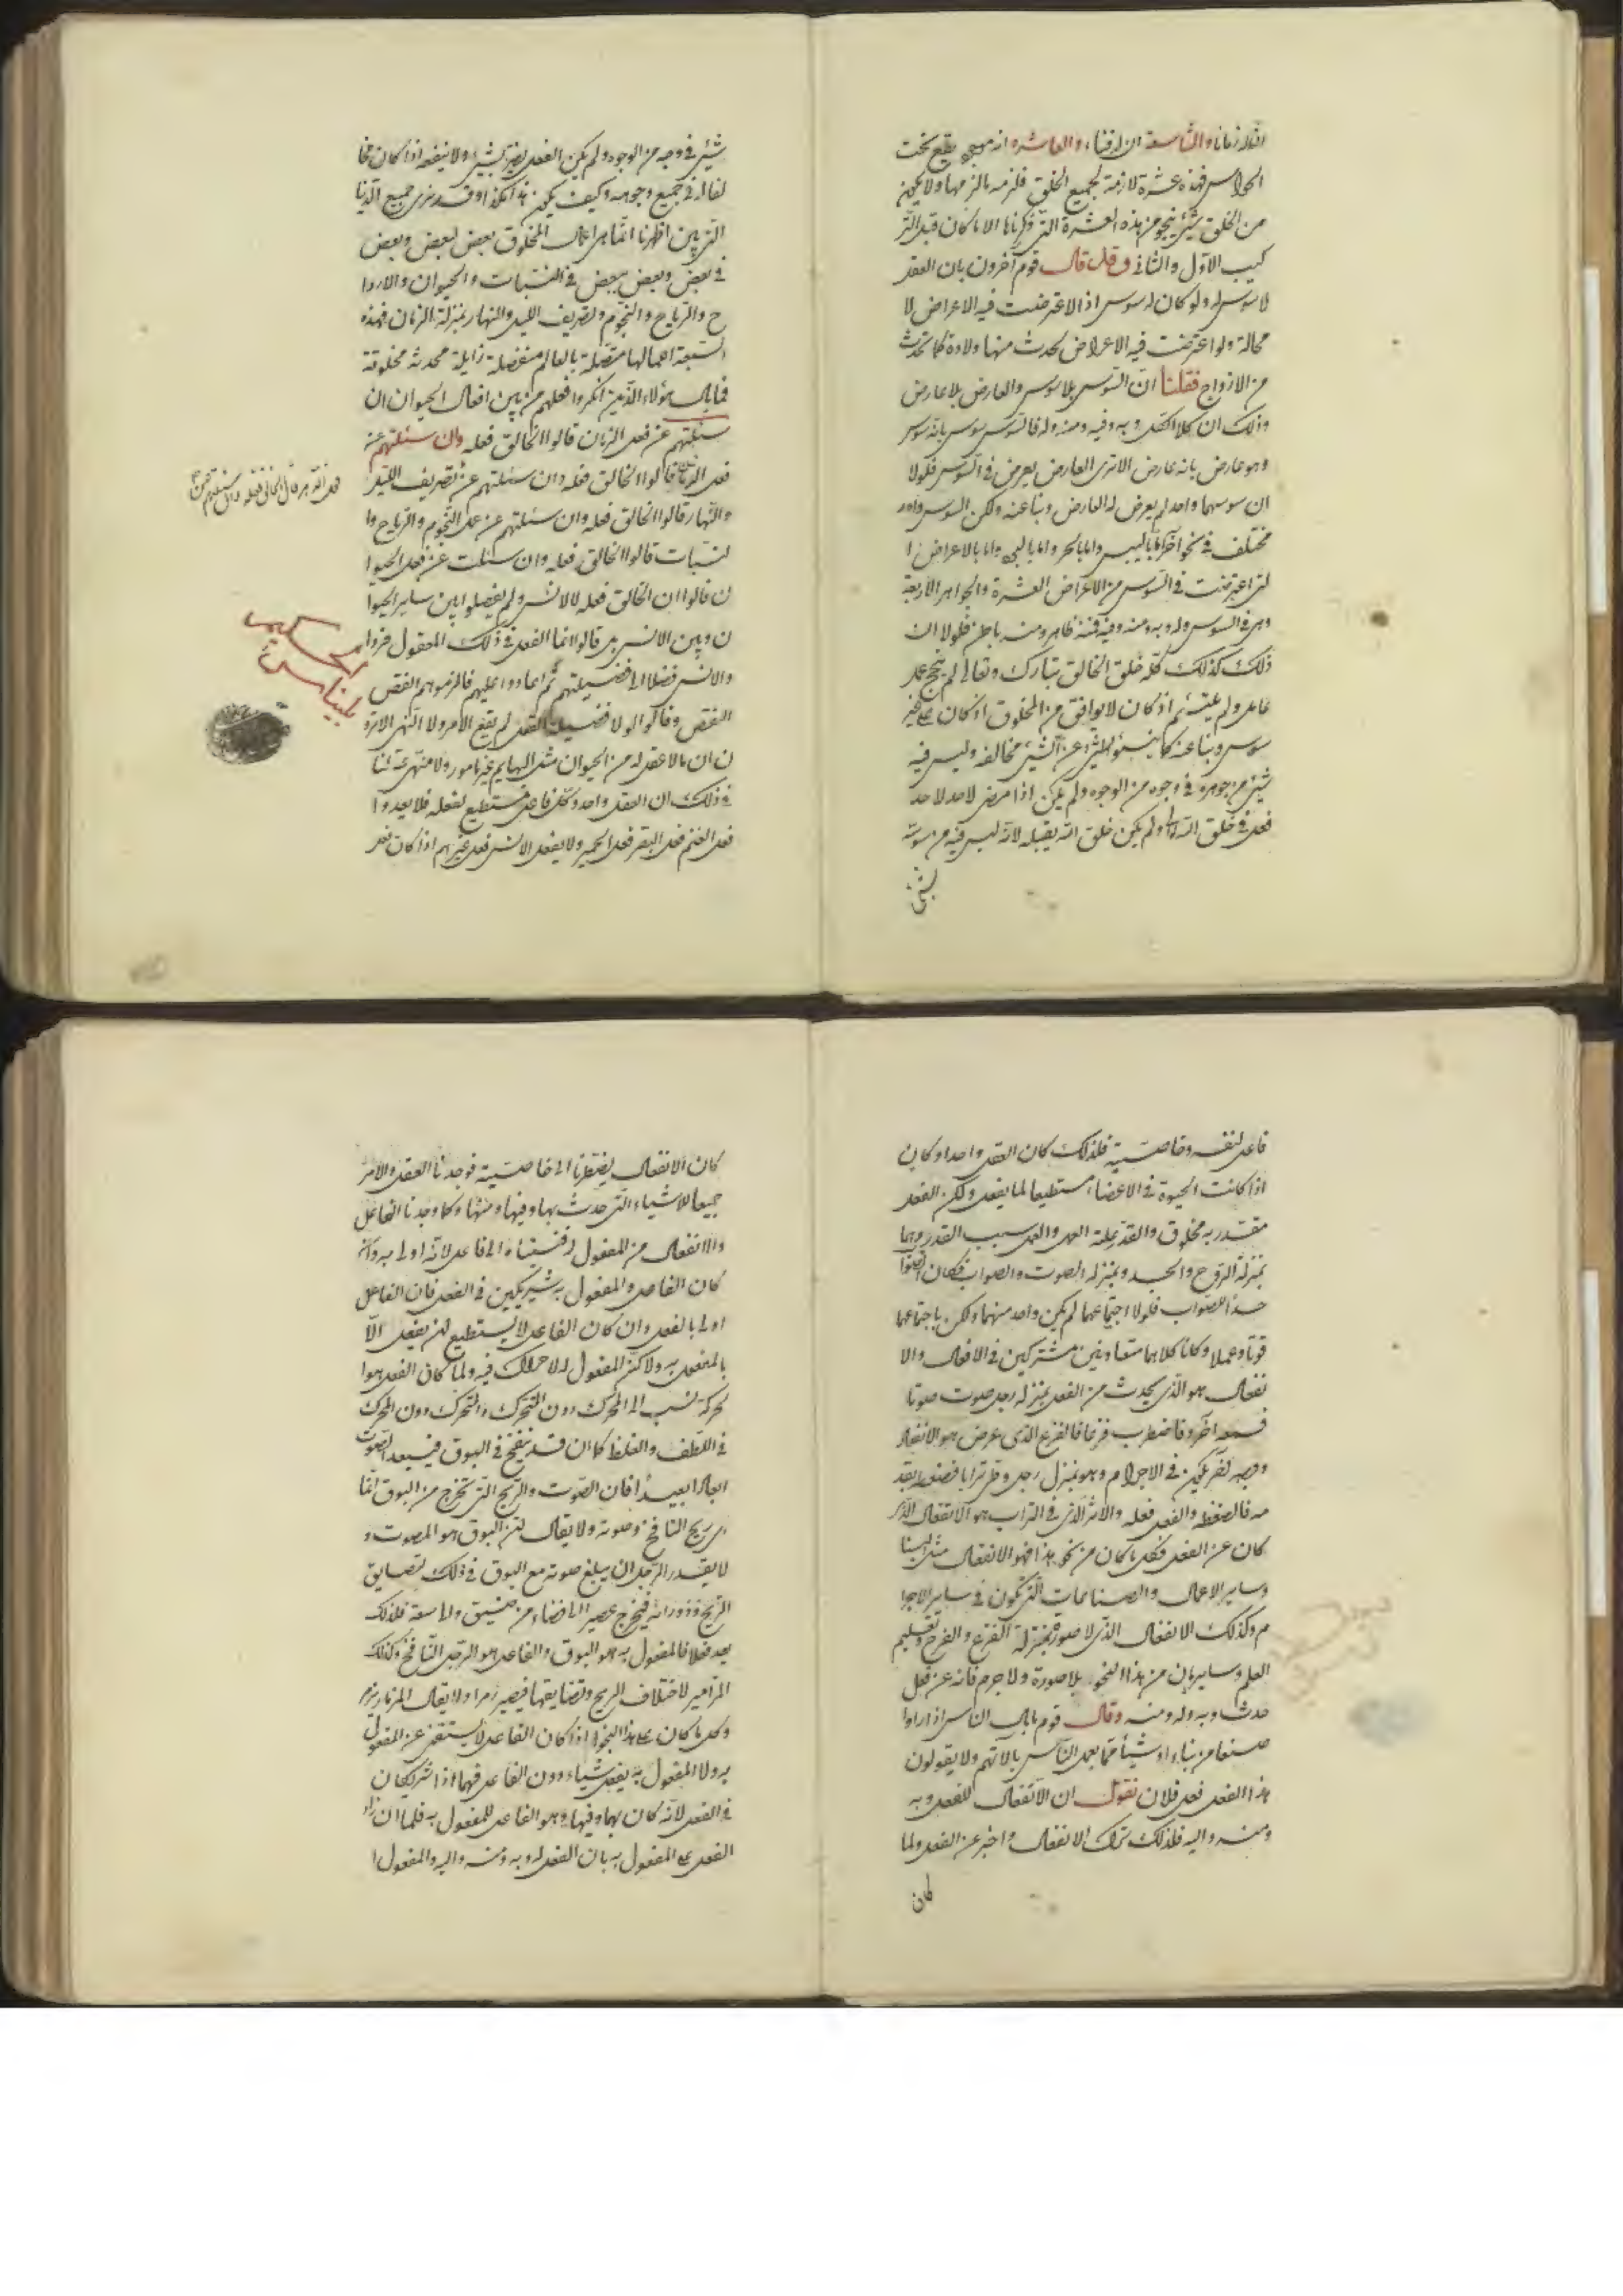 الثالث زمانا والتاسعة ان له فناء والعاشرة انه مسمى يقع تحت
الحواس فهذه عشرة لازمة لجميع الخلق فلزمه ما لزمها ولا يكون
من الخلق شيء ينجو من هذه العشرة التي ذكرناها الا ما كان قبل التر
كيب الاول والثاني وقل قال قوم آخرون بان العقل
لا سوس له ولو كان له سوس اذا لاعترضت فيه الاعراض لا
محالة ولو اعترضت فيه الاعراض لحدث منها ولادة كما تحدث
من الازواج فقلنا ان السوس بلا سوس والعارض بلا عارض
وذلك ان كلا الكل وبه وفيه ومنه وله فالسوس سوس بانه سوس
وهو عارض بانه عارض الا ترى العارض يعرض في السوس فلولا
ان سوسهما واحد لم يعرض له العارض ونبا عنه ولكن السوس واحد
مختلف في نحو آخر اما باليبس واما بالحر واما بالبرد واما بالاعراض ا
لتي اعترضت في السوس من الاعراض العشرة والجواهر الاربعة
وهي في السوس وله وبه ومنه وفيه فمنه ظاهر ومنه باطن فلولا ان
ذلك كذلك كله خلق الخالق تبارك وتعالى لم ينجح عمل
عامل ولم يلتئم اذ كان لا يوافق من المخلوق اذ كان على غير
سوس ونبا عنه كما ينبو الشيء عن الشيء مخالفه وليس فيه
شيء من جوهره في وجوه من الوجوه ولم يكن اذا مرض لاحد لاحد
فعل في خلق الله ولم يكن خلق الله يقبله لانه ليس فيه من سوسه
شيء
شيء في وجه من الوجوه ولم يكن الفعل يضر بشيء ولا ينفعه اذا كان مخا
لفا له في جميع وجوهه وكيف يكون هذا هكذا وقد نرى جميع الدنيا
التي بين اظهرنا انما هي اعمال المخلوق بعض لبعض وبعض
في بعض وبعض ببعض في النبات والحيوان والاروا
ح والرياح والنجوم وتصريف الليل والنهار بمنزلة الزمان فهذه
السبعة اعمالها متصلة بالعالم منفصلة زايلة محدثة مخلوقة
فما بال هؤلاء الذين انكروا فعلهم من بين افعال الحيوان ان
سئلتهم عن فعل الزمان قالوا الخالق فعله وان سئلتهم عن
فعل الرياح قالوا الخالق فعله وان سئلتهم عن تصريف الليل
والنهار قالوا الخالق فعله وان سئلتهم عن عمل النجوم والرياح وا
لنبات قالوا الخالق فعله وان سئلت عن فعل الحيوا
ن قالوا ان الخالق فعله لا الانس ولم يفصلوا بين ساير الحيوا
ن وبين الانس بل قالوا انما الفعل في ذلك المعقول فزوا
والانس فضلا الى فضيلتهم ثم اعادوا عليهم فالزموهم النقص
النقص وقالوا لو لا فضيلة العقل لم يقع الامر ولا النهي الا ترو
ن ان ما لا عقل له من الحيوان مثل البهايم غير مامور ولا منهي عنه لنا
في ذلك ان العقل واحد وكل فاعل مستطيع لفعله فلا يعدو ا
فعل الغنم فعل البقر فعل الحمير ولا يفعل الانس فعل غيرهم اذا كان فعل
بليناس
الحكيم
فاعل لنفسه وخاصيته فلذلك كان العقل واحدا وكان
اذا كانت الحيوة في الاعضاء مستطيعا لما يفعل ولكن الفعل
مقتدر به مخلوق والقدر علة العمل والعمل سبب القدر وهما
بمنزلة الروح والجسد وبمنزلة الصوت والصواب فكان الصوا
حد الصواب فلولا اجتماعهما لم يكن واحد منهما ولكن باجتماعهما
قوتا وعملا وكانا كلاهما متعاونين مشتركين في الافعال والا
نفعال هو الذي يحدث من الفعل بمنزلة رجل صوت صوتا
فسمعه آخر فاضطرب فزعا فالفزع الذي عرض هو الانفعال
ووجه آخر يكون في الاجرام وهو بمنزلة رجل وطى ترابا فضغطه بقد
مه فالضغط والفعل فعله والاثر الذي في التراب هو الانفعال الذي
كان عن الفعل فكل ما كان من نحو هذا فهو الانفعال مثل البنا
وساير الاعمال والصناعات التي تكون في ساير الاجرا
م وكذلك الانفعال الذي لا صورة بمنزلة الفزع والفرح وتعليم
العلم وساير ما بان من هذا النحو بلا صورة ولا جرم فانه عن فعل
حدث وبه وله ومنه وقال قوم ما بال الناس اذا راوا
صنعا من بناء او شيئا مما يعمل الناس بالاتهم ولا يقولون
هذا الفعل فعل فلان نقول ان الانفعال للفعل وبه
ومنه واليه فلذلك ترك الانفعال واخبر عن الفعل ولما
كان
كان الانفعال يضطرنا الى خاصيته فوجدنا العقل والامر
جميعا للاشياء التي حدث بها وفيها ومنها وكما وجدنا الفاعل
والانفعال من المفعول اضفناه الى الفاعل لانه اولى به وانه
كان الفاعل والمفعول به شريكين في الفعل فان الفاعل
اولى بالفعل وان كان الفاعل لا يستطيع ان يفعل الا
بالمفعول به ولا كن المفعول له لا حراك فيه ولما كان الفعل هوا
لحركة نسب الى المحرك دون المتحرك والمتحرك دون المحرك
في اللطف والغلظ كما ان قد ينفخ في البوق فيبعد الصوت
ابعادا بعيدا فان الصوت والريح التي تخرج من البوق انما
هي ريح النافخ وصوته ولا يقال ان البوق هو المصوت و
لا يقدر الرجل ان يبلغ صوته مع البوق في ذلك لتضايق
الريح ودورانه فيخرج عصيرا الى فضاء من ضيق والى سعة فلذلك
بعد فعلا فالمفعول به هو البوق والفاعل هو الرجل النافخ وكذلك
المزامير لاختلاف الريح وتضايقها فيصير زمرا ولا يقال المزمار يزمر
وكل ما كان على هذا النحو اذا كان الفاعل لا يستغني عن المفعول
به ولا المفعول به يفعل شيئا دون الفاعل فهما اذا شريكان
في الفعل لانه كان بهما وفيها وهو الفاعل للمفعول به فلما ان زاد
الفعل على المفعول به بان الفعل له وبه ومنه واليه والمفعول ا